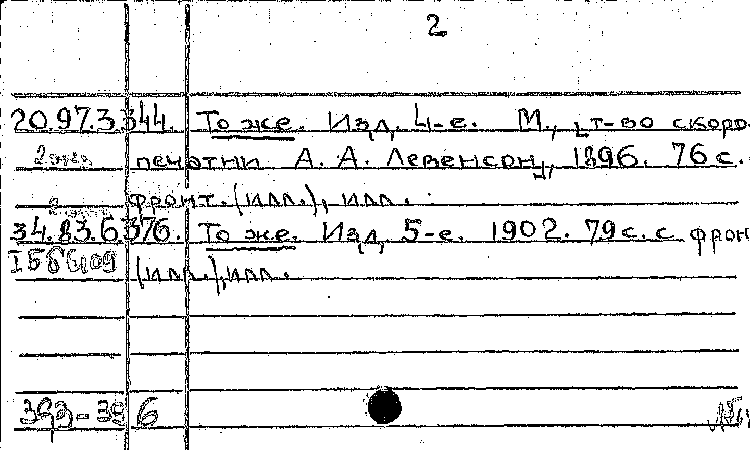 2
20.97.3.344. То же. Изд. 4-е. М., т-во скоро
2 экз. печатни А. А. Левенсон, 1896. 76 с.
фронт. (илл.), илл.
34.83.6.376. То же. Изд. 5-е. 1902. 79 с. с фрон
(илл.), илл.